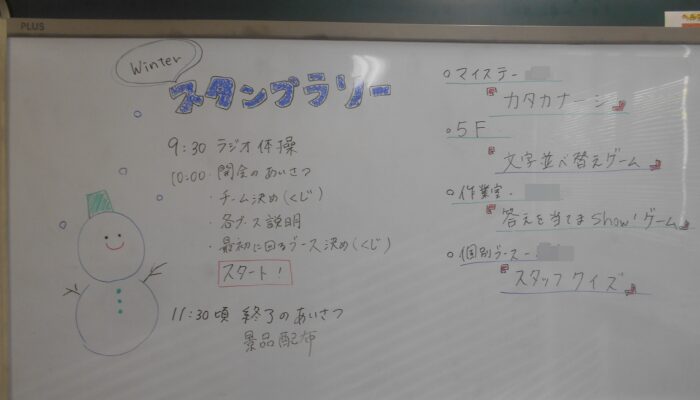 PLUS
Winter
スタンプラリー
9:30 ラジオ体操
10:00・開会のあいさつ
・チーム決め(くじ)
・各ブース説明
・最初に回るブース決め(くじ)
スタート!
11:30頃 終了のあいさつ
景品配布
○マイステ-
カタカナーシ
○5F
文字並べ替えゲーム
○作業室-
答えを当てまshow!ゲーム
○個別ブース-
スタッフクイズ